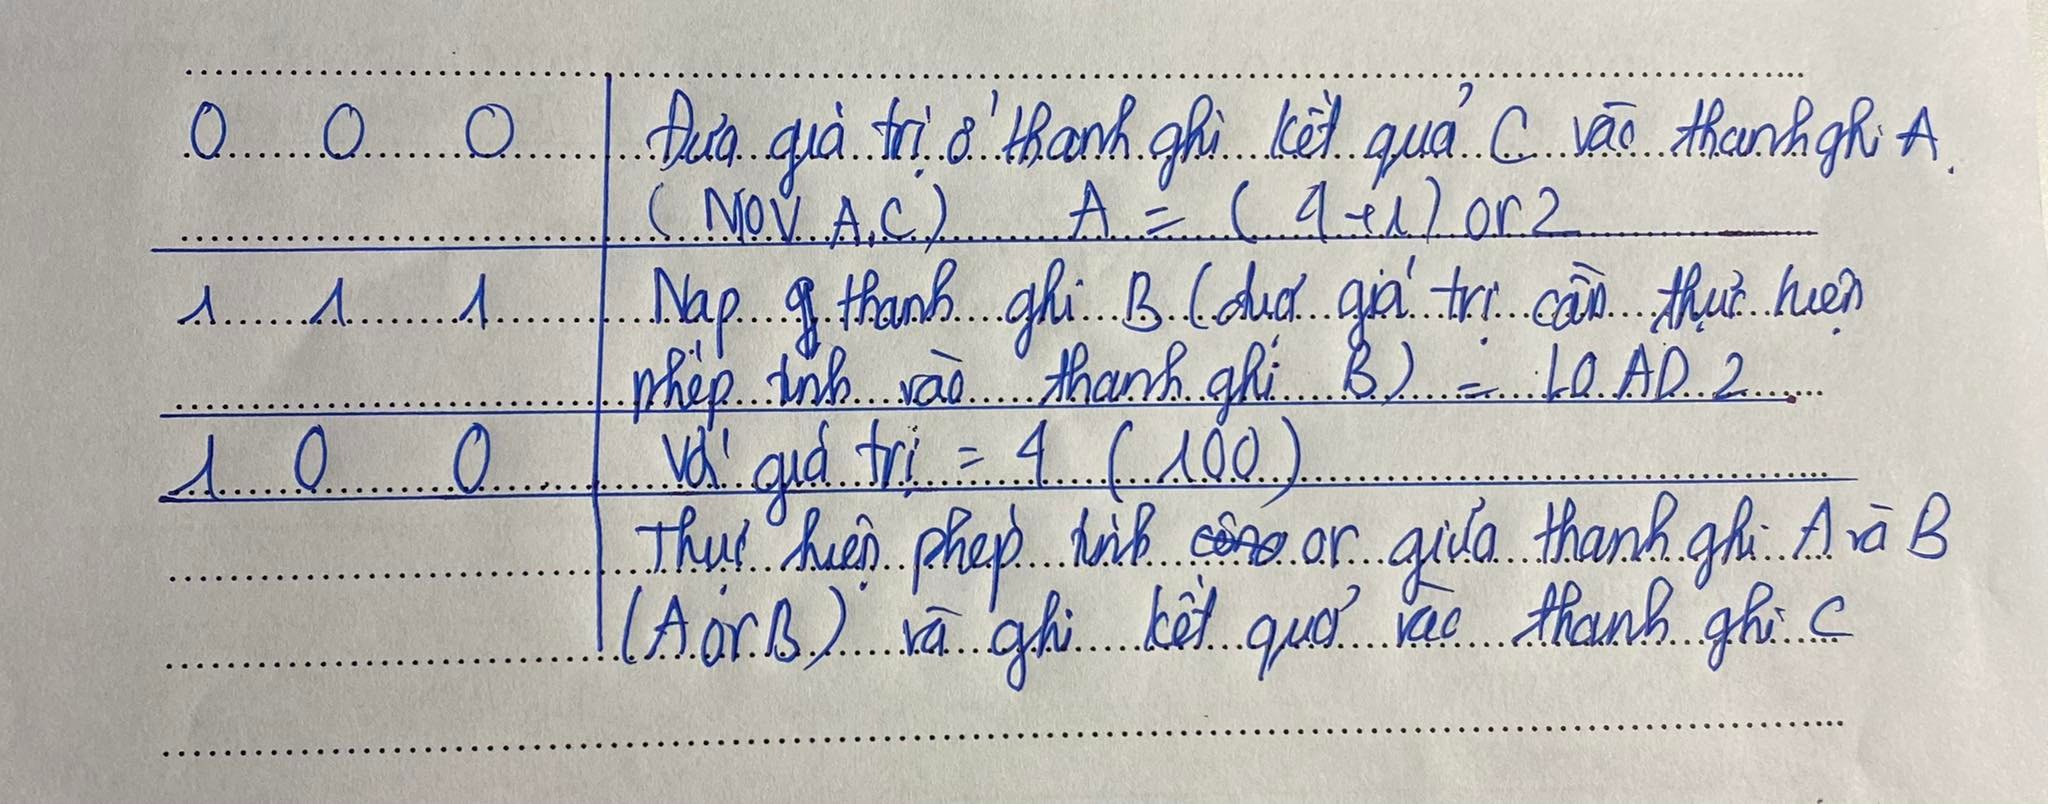 0 0 0 Đưa giá trị ở thanh ghi kết quả C vào thanh ghi A.
(MOV A,C) A = (4+1) or 2
1 1 1 Nạp thanh ghi B (đưa giá trị cần thực hiện
phép tính vào thanh ghi B) = LOAD 2
1 0 0 Với giá trị = 4 (100)
Thực hiện phép tính or giữa thanh ghi A và B
(A or B) và ghi kết quả vào thanh ghi C